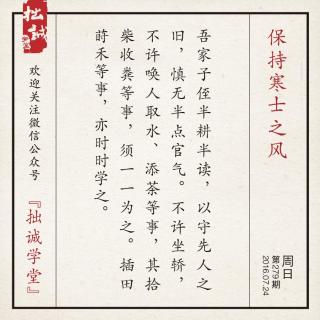 保持寒士之风
吾家子侄半耕半读，以守先人之
旧，慎无半点官气。不许坐轿，
不许唤人取水、添茶等事，其拾
柴收粪等事，须一一为之。插田
莳禾等事，亦时时学之。
拙诚
欢迎关注微信公众号
『拙诚学堂』
周日
第279期
2016.07.24